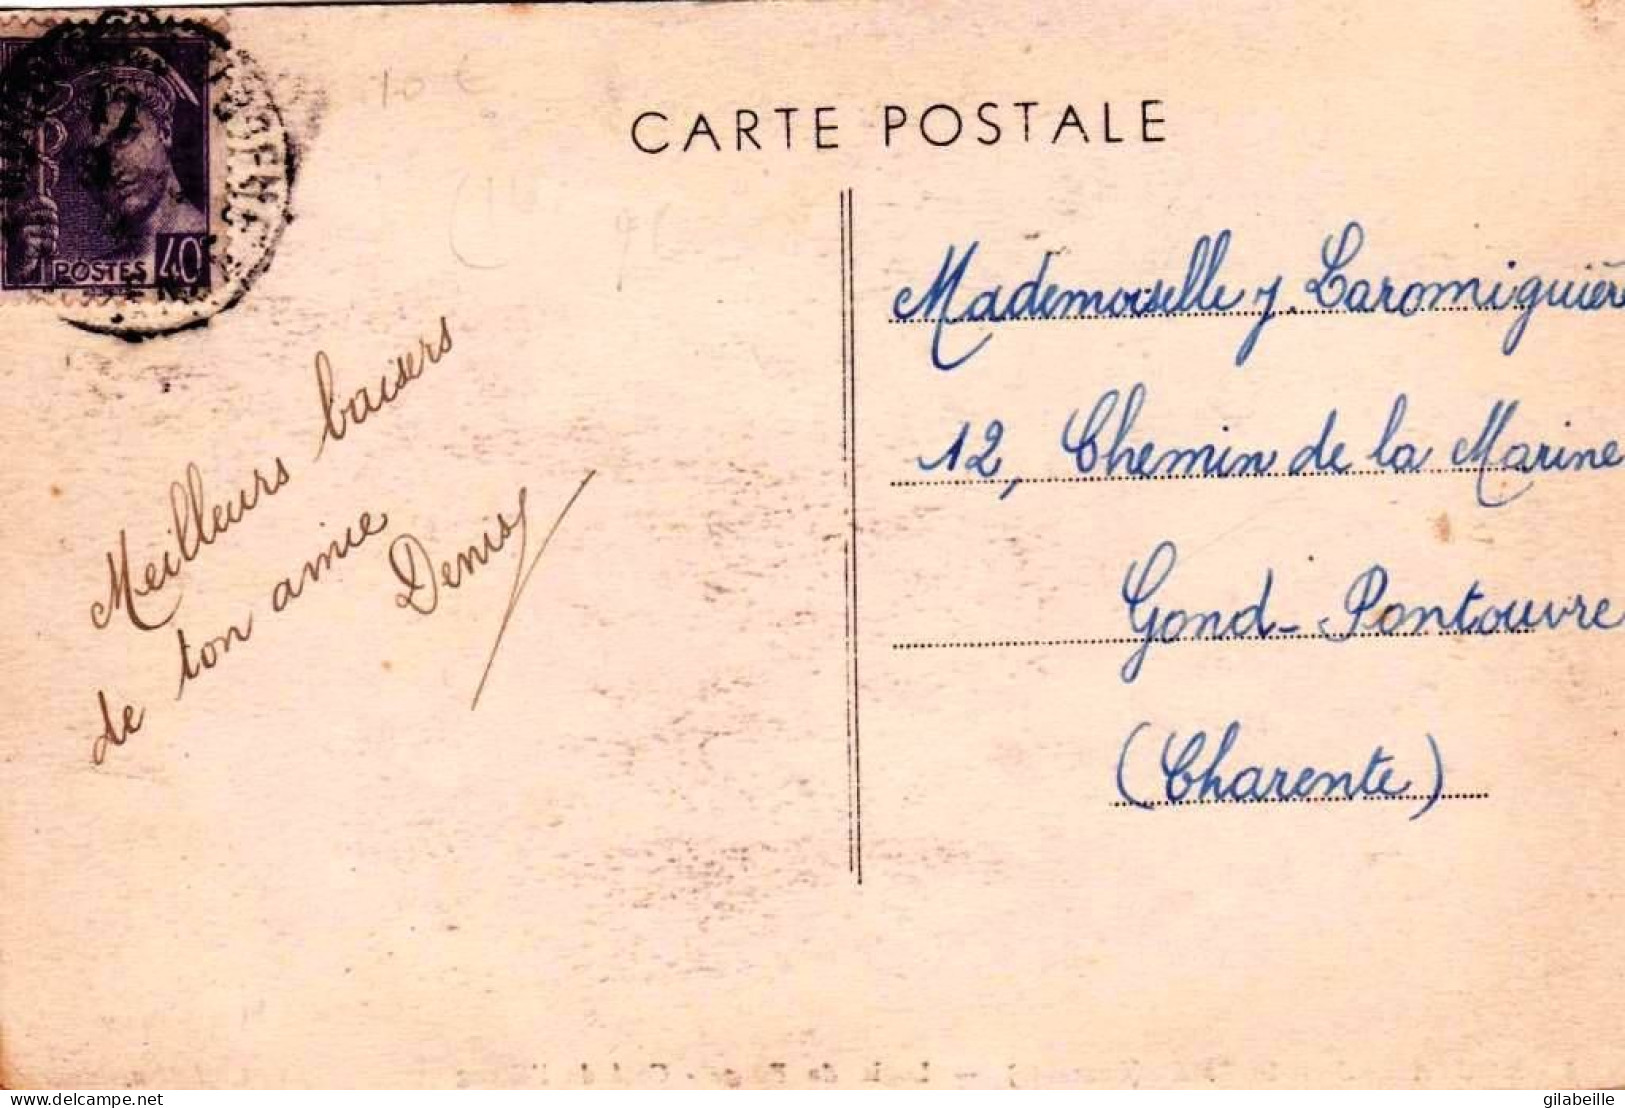 10 €
CARTE POSTALE
POSTES 40
Meilleurs baisers
de ton amie
Denise
Mademoiselle J. Laromiguière
12, Chemin de la Marine
Gond-Pontouvre
(Charente)
Delcampe.net
gilabeille